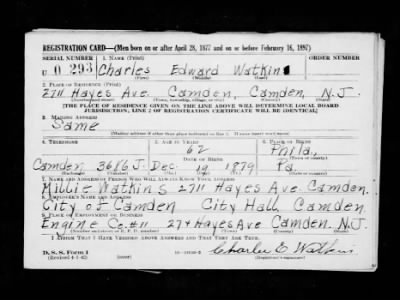 REGISTRATION CARD—(Men born on or after April 28, 1877 and on or before February 16, 1897)
SERIAL NUMBER 1. NAME (Print) ORDER NUMBER
U 0 293 Charles Edward Watkins
(First) (Middle) (Last)
2. PLACE OF RESIDENCE (Print)
2711 Hayes Ave. Camden, Camden, N.J.
(Number and street) (Town, township, village, or city) (County) (State)
[THE PLACE OF RESIDENCE GIVEN ON THE LINE ABOVE WILL DETERMINE LOCAL BOARD
JURISDICTION; LINE 2 OF REGISTRATION CERTIFICATE WILL BE IDENTICAL]
3. MAILING ADDRESS
Same
[Mailing address if other than place indicated on line 2. If same insert word same]
4. TELEPHONE 5. AGE IN YEARS 6. PLACE OF BIRTH
62 Phila,
DATE OF BIRTH (Town or county)
Camden 3686J Dec. 19 1879 Pa.
(Exchange) (Number) (Mo.) (Day) (Yr.) (State or country)
7. NAME AND ADDRESS OF PERSON WHO WILL ALWAYS KNOW YOUR ADDRESS
Millie Watkins 2711 Hayes Ave. Camden.
8. EMPLOYER'S NAME AND ADDRESS
City of Camden City Hall, Camden
9. PLACE OF EMPLOYMENT OR BUSINESS
Engine Co. #11 27 & Hayes Ave Camden. N.J.
(Number and street or R. F. D. number) (Town) (County) (State)
I AFFIRM THAT I HAVE VERIFIED ABOVE ANSWERS AND THAT THEY ARE TRUE.
D. S. S. Form 1 Charles E Watkins
(Revised 4-1-42) (Registrant's signature)